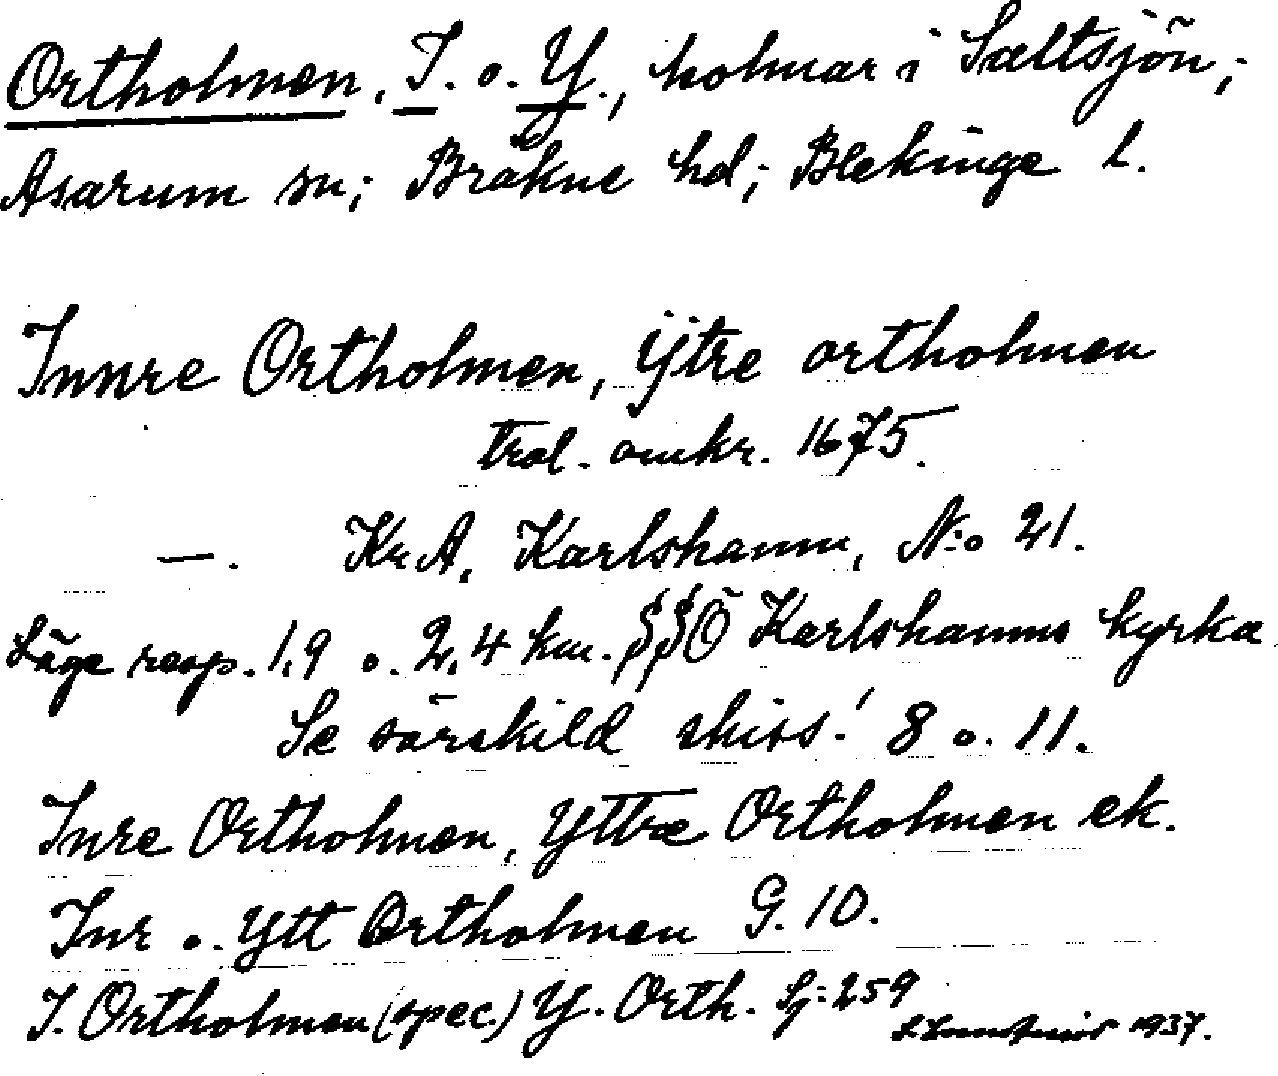 Ortholmen, I. o. Y., holmar i Saltsjön;
Asarum sn; Bräkne hd; Blekinge l.
Innre Ortholmen, ÿtre ortholmen
trol. omkr. 1675.
—. Kr A, Karlshamn, N:o 21.
Läge resp. 1,9 o. 2,4 km. SSÖ Karlshamns kyrka
Se särskild skiss! 8 o. 11.
Inre Ortholmen, Yttre Ortholmen ek.
Inr o. Ytt Ortholmen G. 10.
I. Ortholmen (spec.) Y. Orth. Sj: 259
1937.